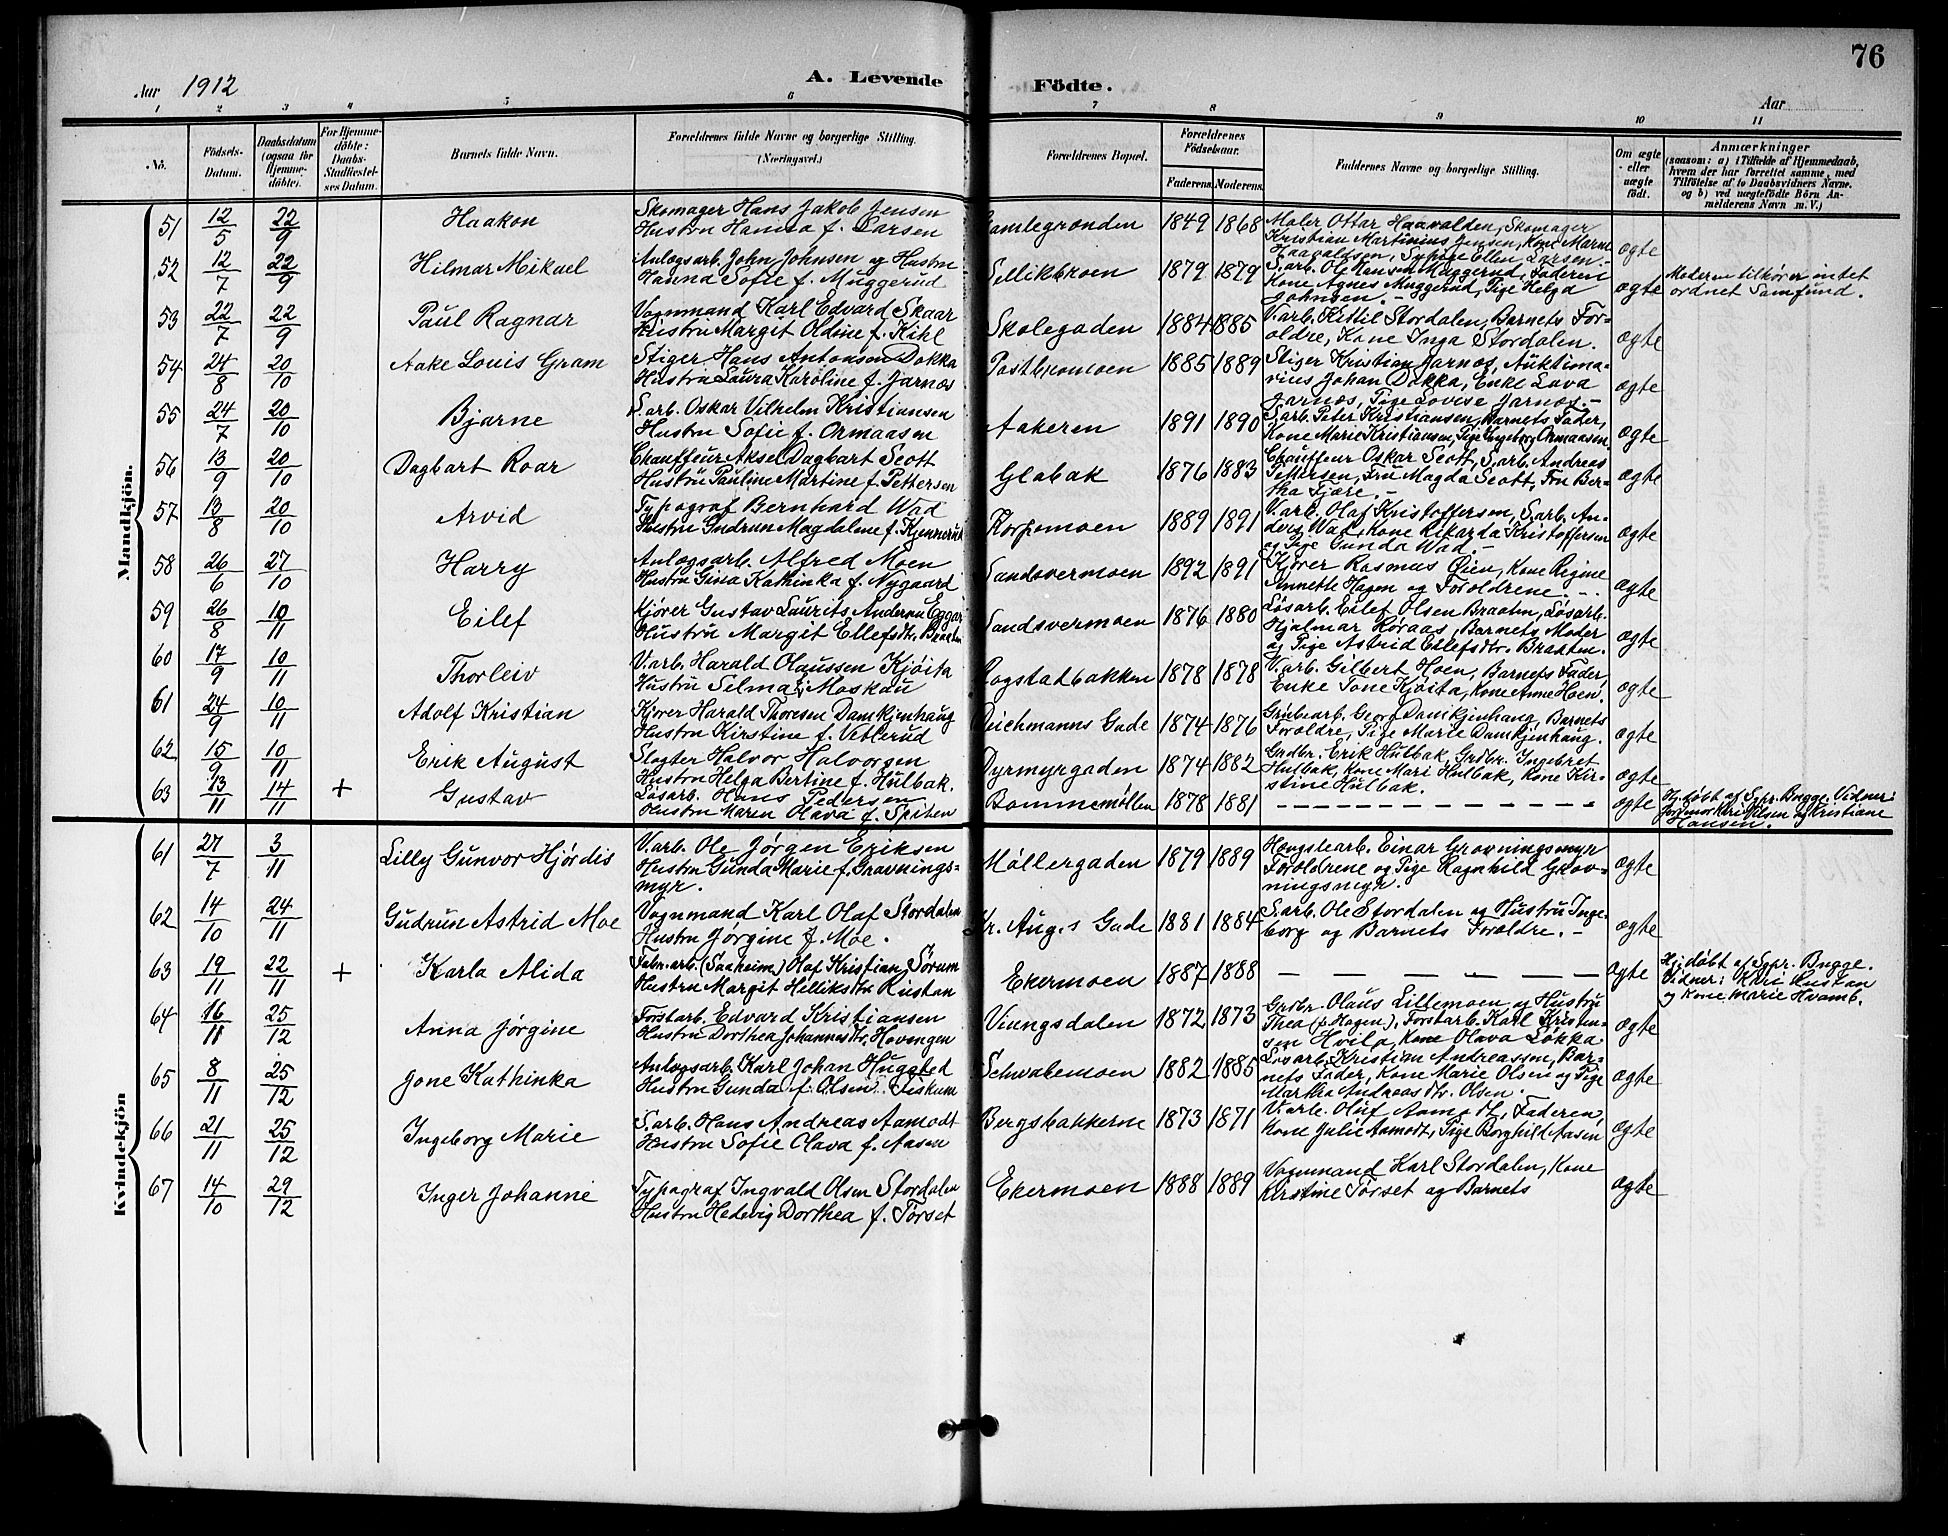 76
Aar 1912
A. Levende Födte.
Aar
1 2 3 4 5 6 7 8 9 10 11
No.
Födsels-Datum.
Daabsdatum (ogsaa for Hjemmedöbte).
For Hjemmedöbte: Daabs-Stadfæstelses Datum.
Barnets fulde Navn.
Forældrenes fulde Navne og borgerlige Stilling. (Næringsvei.)
Forældrenes Bopæl.
Forældrenes Födselsaar.
Faderens. Moderens.
Faddernes Navne og borgerlige Stilling.
Om ægte eller uægte födt.
Anmærkninger
(saasom: a) i Tilfælde af Hjemmedaab, hvem der har forrettet samme, med Tilföielse af to Daabsvidners Navne, og b) ved uægtefödte Börn Anmelderens Navn m. V.)
Mandkjön.
51 12/5 22/9 Haakon
Skomager Hans Jakob Jensen
Hustru Hanna f. Larsen
Gamlegrønden 1849 1868
Maler Ottar Haavalden, Skomager
Kristian Martinius Jensen, Kone Marie
Haavaldsen, Sypige Ellen Larsen.
ægte
52 12/7 22/9 Hilmar Mikael
Anlægsarb. John Johnsen og Hustru
Hanna Sofie f. Muggerud
Sellikbroen 1879 1879
S.arb. Ole Hansen Muggerud, Faderen
Kone Agnes Muggerud, Pige Helga
Johnsen. -
ægte
Moderen tilhører intet
ordnet Samfund.
53 22/7 22/9 Paul Ragnar
Vognmand Karl Edvard Skaar
Hustru Margit Oldine f. Kihl
Skolegaden 1884 1885
V.arb. Kittil Stordalen, Barnets For-
ældre, Kone Inga Stordalen.
ægte
54 24/8 20/10 Aake Louis Gram
Stiger Hans Antonsen Dokka
Hustru Laura Karoline f. Jarnæs
Postbromoen 1885 1889
Stiger Kristian Jarnæs, Auktiona-
rius Johan Dokka, Enke Lava
Jarnæs, Pige Lovise Jarnæs. -
ægte
55 24/7 20/10 Bjarne
S.arb. Oskar Vilhelm Kristiansen
Hustru Sofie f. Ormaasen
Aakeren 1891 1890
S.arb. Peter Kristiansen, Barnets Fader,
Kone Marie Kristiansen, Pige Ingeborg Ormaasen
ægte
56 13/9 20/10 Dagbart Roar
Chauffeur Aksel Dagbart Scott
Hustru Pauline Martine f. Pettersen
Glabak 1876 1883
Chauffeur Oskar Scott, S.arb. Andreas
Pettersen, Fru Magda Scott, Fru Ber-
tha Fjære. -
ægte
57 13/8 20/10 Arvid
Typograf Bernhard Wad
Hustru Gudrun Magdalene f. Kjennerud
Thorpemoen 1889 1891
V.arb. Olaf Kristoffersen, S.arb. An-
ders Wad, Kone Rikarda Kristoffersen
og Pige Gunda Wad. -
ægte
58 26/6 27/10 Harry
Anlægsarb. Alfred Moen
Hustru Gina Kathinka f. Nygaard
Sandsvermoen 1892 1891
Kjører Rasmus Øien, Kone Regine
Annette Hagen og Forældrene. -
ægte
59 26/8 10/11 Eilef
Kjører Gustav Laurits Andersen Eggar
Hustru Margit Ellefsdtr. Braaten
Sandsvermoen 1876 1880
Løsarb. Eilef Olsen Braaten, Løsarb.
Hjalmar Høraas, Barnets Moder
og Pige Astrid Eilefsdtr. Braaten.
ægte
60 17/9 10/11 Thorleiv
V.arb. Harald Olaussen Kjøita
Hustru Selma f. Moskau
Rogstadbakken 1878 1878
V.arb. Gilbert Hoen, Barnets Fader
Enke Tone Kjøita, Kone Anne Hoen.
ægte
61 24/9 10/11 Adolf Kristian
Kjører Harald Thoresen Damkjenhaug
Hustru Kirstine f. Vetlerud
Deichmanns Gade 1874 1876
Grubearb. Georg Damkjenhaug, Barnets
Forældre, Pige Marie Damkjenhaug.
ægte
62 15/9 10/11 Erik August
Slagter Halvor Halvorsen
Hustru Helga Bertine f. Hulbak.
Dyrmyrgaden 1874 1882
Grdbr. Erik Hulbak, Grdbr. Ingebret
Hulbak, Kone Mari Hulbak, Kone Kir-
stine Hulbak.
ægte
63 13/11 14/11 + Gustav
Løsarb. Hans Pedersen
Hustru Maren Olava f. Spiten
Bommemøllen 1878 1881
- - - - - - - - - -
ægte
Hj. døbt af Spr. Bugge. Vidner:
Jordmor Kari Nilsen og Kristiane
Hansen.
Kvindekjön
61 27/7 3/11 Lilly Gunvor Hjørdis
V.arb. Ole Jørgen Eriksen
Hustru Gunda Marie f. Gravnings-
myr.
Møllergaden 1879 1889
Hængslearb. Einar Gravningsmyr
Forældrene og Pige Ragnhild Grav-
ningsmyr.
ægte
62 14/10 24/11 Gudrun Astrid Moe
Vognmand Karl Olaf Stordalen
Hustru Jørgine f. Moe.
Kr. Aug.s Gade 1881 1884
S.arb. Ole Stordalen og Hustru Inge-
borg og Barnets Forældre. -
ægte
63 19/11 22/11 + Karla Alida
Fabr.arb. (Saaheim) Olaf Kristian Sørum
Hustru Margit Helliksdtr. Rustan
Ekermoen 1887 1888
- - - - - -
ægte
Hj. døbt af Spr. Bugge.
Vidner: Kari Rustan
og Kone Marie Hvamb.
64 16/11 25/12 Anna Jørgine
Forstarb. Edvard Kristiansen
Hustru Dorthea Johannesdtr. Hovengen
Vinngsdalen 1872 1873
Grdbr. Olaus Lillemoen og Hustru
Thea (f. Hagen), Forstarb. Karl Kristen-
sen Hvila, Kone Olava Løkka
ægte
65 8/11 25/12 Jone Kathinka
Anlægsarb. Karl Johan Huggted
Hustru Gunda f. Olsen Fiskum
Schwabemoen 1882 1885
Løsarb. Kristian Andreassen, Bar-
nets Fader, Kone Marie Olsen og Pige
Martha Andreasdtr. Olsen.
ægte
66 21/11 25/12 Ingeborg Marie
S.arb. Hans Andreas Aamodt
Hustru Sofie Olava f. Aasen
Bergsbakkerne 1873 1871
V.arb. Oluf Aamodt, Faderen,
Kone Julie Aamodt, Pige Borghild Aasen
ægte
67 14/10 29/12 Inger Johanne
Typograf Ingvald Olsen Stordalen
Hustru Hedevig Dorthea f. Tørset
Ekermoen 1888 1889
Vognmand Karl Stordalen, Kone
Kirstine Tørset og Barnets
ægte